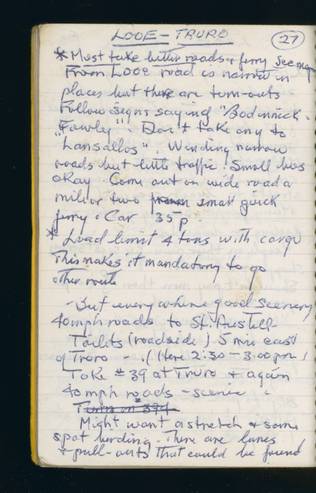 LOOE - TRURO
27
* Must take little roads & ferry See map
From Looe road is narrow in
places but there are turn-outs
Follow signs saying "Bodinnick -
"Fowey". Don't take any to
"Lansallos". Winding narrow
roads but little traffic. Small bus
okay Come out on wide road a
mile or two from small quick
ferry. Car 35p
* Load limit 4 tons with cargo
This makes it mandatory to go
other route
- But everywhere good scenery
40 mph roads to St. Austell -
Toilets (roadside) 5 min east
of Truro - . (Here 2:30 - 3:00 pm)
Take #39 at Truro + again
40 mph roads - scenic.
Turn on 394
Might want a stretch & some
spot birding. There are lanes
& pull-outs that could be found